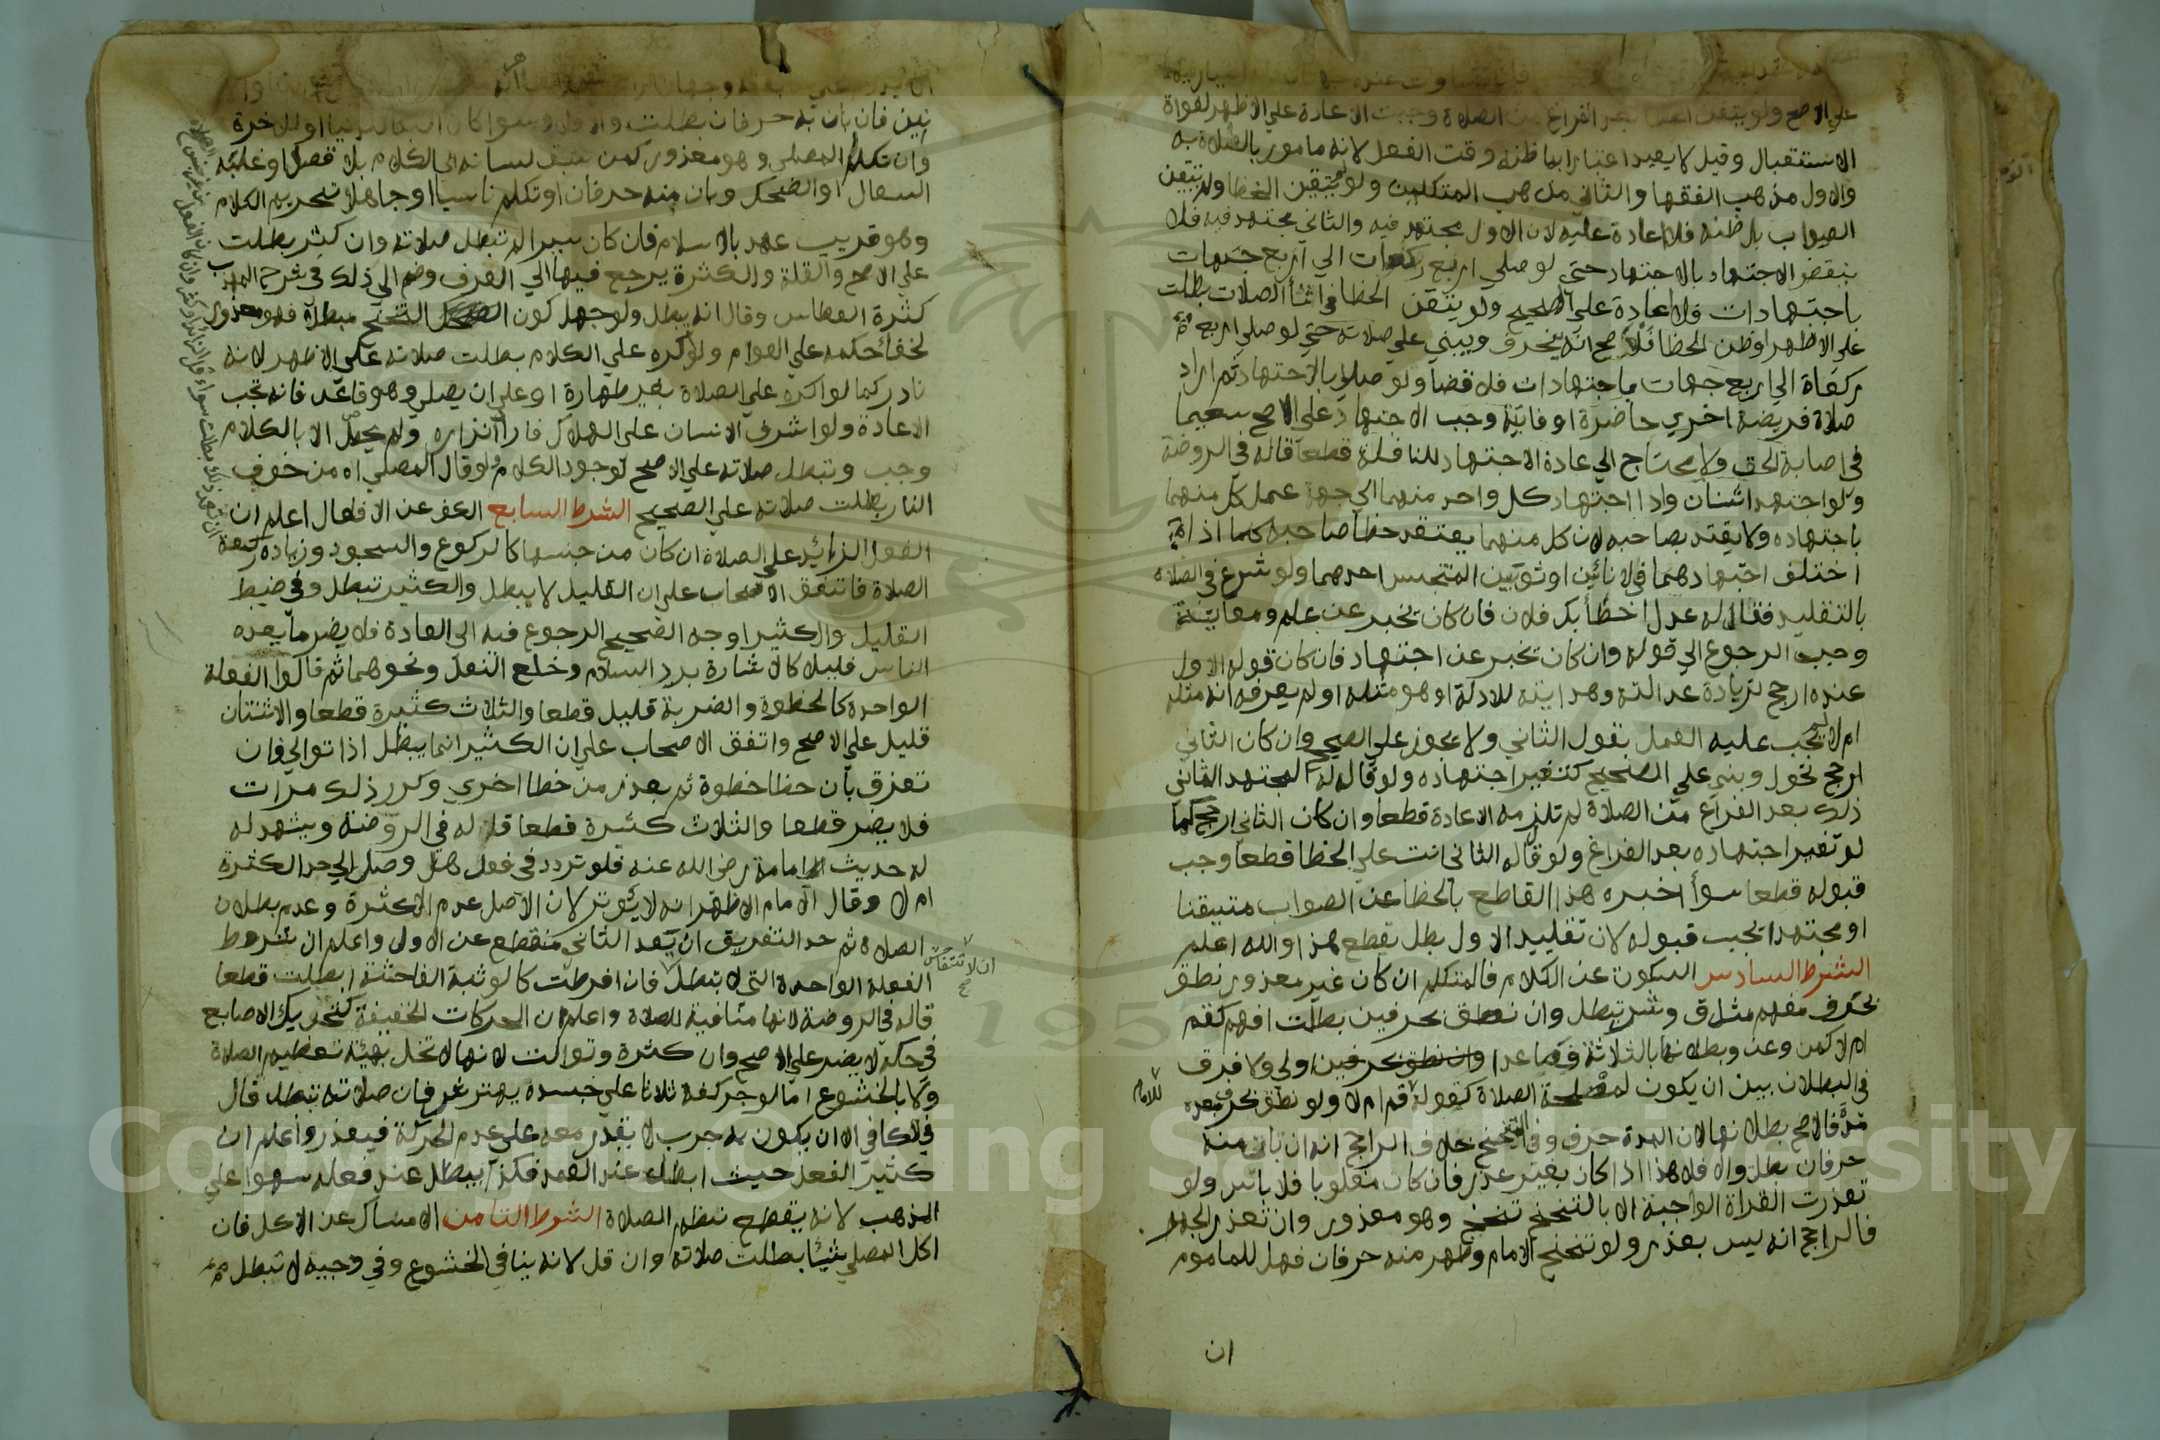 علي الاصح ولو تيقن الخطا بعد الفراغ من الصلاة وجبت الاعادة علي الاظهر لفواة
الاستقبال وقيل لا يعيد اعتبارا بما ظنه وقت الفعل لانه مامور بالصلاة به
والاول مذهب الفقها والثاني مذهب المتكلمين ولو تيقن الخطا ولم يتيقن
الصواب بل ظنه فلا اعادة عليه لان الاول مجتهد فيه والثاني مجتهد فيه فلا
ينقض الاجتهاد بالاجتهاد حتي لو صلي اربع ركعات الي اربع جهات
باجتهادات فلا اعادة علي الصحيح ولو تيقن الخطا في اثنا الصلات بطلت
علي الاظهر او ظن الخطا فالاصح انه ينحرف ويبني علي صلاته حتي لو صلي اربع
ركعاة الي اربع جهات باجتهادات فلا قضا ولو صلي بالاجتهاد ثم اراد
صلاة فريضة اخري حاضرة او فايتة وجب الاجتهاد علي الاصح سعيا
في اصابة الحق ولا يحتاج الي عادة الاجتهاد للنافلة قطعا قاله في الروضة
ولو اجتهد اثنان وادا اجتهاد كل واحد منهما الي جهة عمل كل منهما
باجتهاده ولا يقتد بصاحبه لان كل منهما يعتقد خطا صاحبه كما اذا
اختلف اجتهادهما في الانائين او ثوبين المتنجس احدهما ولو شرع في الصلاة
بالتقليد فقال له عدل اخطأ بك فلان فان كان يخبر عن علم ومعاينة
وجب الرجوع الي قوله وان كان يخبر عن اجتهاد فان كان قوله الاول
عنده ارجح لزيادة عدالته وهدايته للادلة او هو مثله او لم يعرف انه مثله
ام لا لم يجب عليه العمل بقول الثاني ولا يجوز علي الصحيح وان كان الثاني
ارجح تحول وبني علي الصحيح كتغير اجتهاده ولو قال له المجتهد الثاني
ذلك بعد الفراغ من الصلاة لم تلزمه الاعادة قطعا وان كان الثاني ارجح كما
لو تغير اجتهاده بعد الفراغ ولو قال له الثاني انت علي الخطا قطعا وجب
قبوله قطعا سوأ اخبره هذا القاطع بالخطا عن الصواب متيقنا
او مجتهدا يجب قبوله لان تقليد الاول بطل بقطع هذا والله اعلم
الشرط السادس السكوت عن الكلام فالمتكلم ان كان غير معذور نطق
بحرف مفهم مثل ق وش تبطل وان نطق بحرفين بطلت افهم كقم
ام لا كمن وعن وبطلانها بالثلاثة فصاعدا وان نطق بحرفين اولي ولا فرق
في البطلان بين ان يكون لمصلحة الصلاة كقوله للامام قم ام لا ولو نطق بحرف بعده
مدة فالاصح بطلانها لان المدة حرف وفي التنحنح خلاف الراجح انه ان بان منه
حرفان بطل والا فلا هذا اذا كان بغير عذر فان كان مغلوبا فلا باس ولو
تعذرت القراة الواجبة الا بالتنحنح تنحنح وهو معذور وان تعذر الجهر
فالراجح انه ليس بعذر ولو تنحنح الامام وظهر منه حرفان فهل للماموم
ان
بين فان بان به حرفان بطلت والا فلا وسوا كان البكا للدنيا او للاخرة
وان تكلم المصلي وهو معذور كمن سبق لسانه الي الكلام بلا قصد او غلبه
السعال او الضحك وبان منه حرفان او تكلم ناسيا او جاهلا تحريم الكلام
وهو قريب عهد بالاسلام فان كان يسيرا لم تبطل صلاته وان كثر بطلت
علي الاصح والقلة والكثرة يرجع فيها الي العرف وضم الي ذلك في شرح المهذب
كثرة العطاس وقال انه يبطل ولو جهل كون التنحنح مبطلا فهو معذور
لخفأ حكمه علي العوام ولو اكره علي الكلام بطلت صلاته علي الاظهر لانه
نادر كما لو اكره علي الصلاة بغير طهارة او علي ان يصلي وهو قاعد فانه تجب
الاعادة ولو اشرف الانسان علي الهلاك فاراد انزاره ولم يحصل الا بالكلام
وجب وتبطل صلاته علي الاصح لوجود الكلام ولو قال المصلي اه من خوف
النار بطلت صلاته علي الصحيح الشرط السابع الكف عن الافعال اعلم ان
الفعل الزايد علي الصلاة ان كان من جنسها كالركوع والسجود وزيادة ركعة
الصلاة فاتفق الاصحاب علي ان القليل لا يبطل والكثير تبطل وفي ضبط
القليل والكثير اوجه الصحيح الرجوع فيه الي العادة فلا يضر ما يعده
الناس قليلا كالاشارة برد السلام وخلع النعل ونحوهما ثم قالوا الفعلة
الواحدة كالخطوة والضربة قليل قطعا والثلاث كثيرة قطعا والاثنتان
قليل علي الاصح واتفق الاصحاب علي ان الكثير انما يبطل اذا توالي فان
تفرق بان خطا خطوة ثم بعد زمن خطا اخري وكرر ذلك مرات
فلا يضر قطعا والثلاث كثيرة قطعا قاله في الروضة ويشهد له
له حديث امامة رضي الله عنه فلو تردد في فعل هل وصل الي حد الكثرة
ام لا وقال الامام الاظهر انه لا يؤثر لان الاصل عدم الكثرة وعدم بطلان
الصلاة ثم حد التفريق ان يعد الثاني منقطع عن الاول واعلم ان شروط
الفعلة الواحدة التي لا تبطل ان لا تتفاحش صح فان افرطت كالوثبة الفاحشة ابطلت قطعا
قاله في الروضة لانها منافية للصلاة واعلم ان الحركات الخفيفة كتحريك الاصابع
في حكة لا يضر علي الاصح وان كثرة وتوالت لانها لا تخل بهيئة تعظيم الصلاة
ولا بالخشوع اما لو حرك كفه ثلاثا علي جسده بغير عذر فان صلاته تبطل قال
في الكافي الا ان يكون به جرب لا يقدر معه علي عدم الحركة فيعذر واعلم ان
كثير الفعل حيث ابطل عند العمد فكذا يبطل عند فعله سهوا علي
المذهب لانه يقطع نظم الصلاة الشرط الثامن الامساك عن الاكل فان
اكل المصلي شيئا بطلت صلاته وان قل لانه ينافي الخشوع وفي وجيه لا تبطل
Copyright © King Saud University
1957